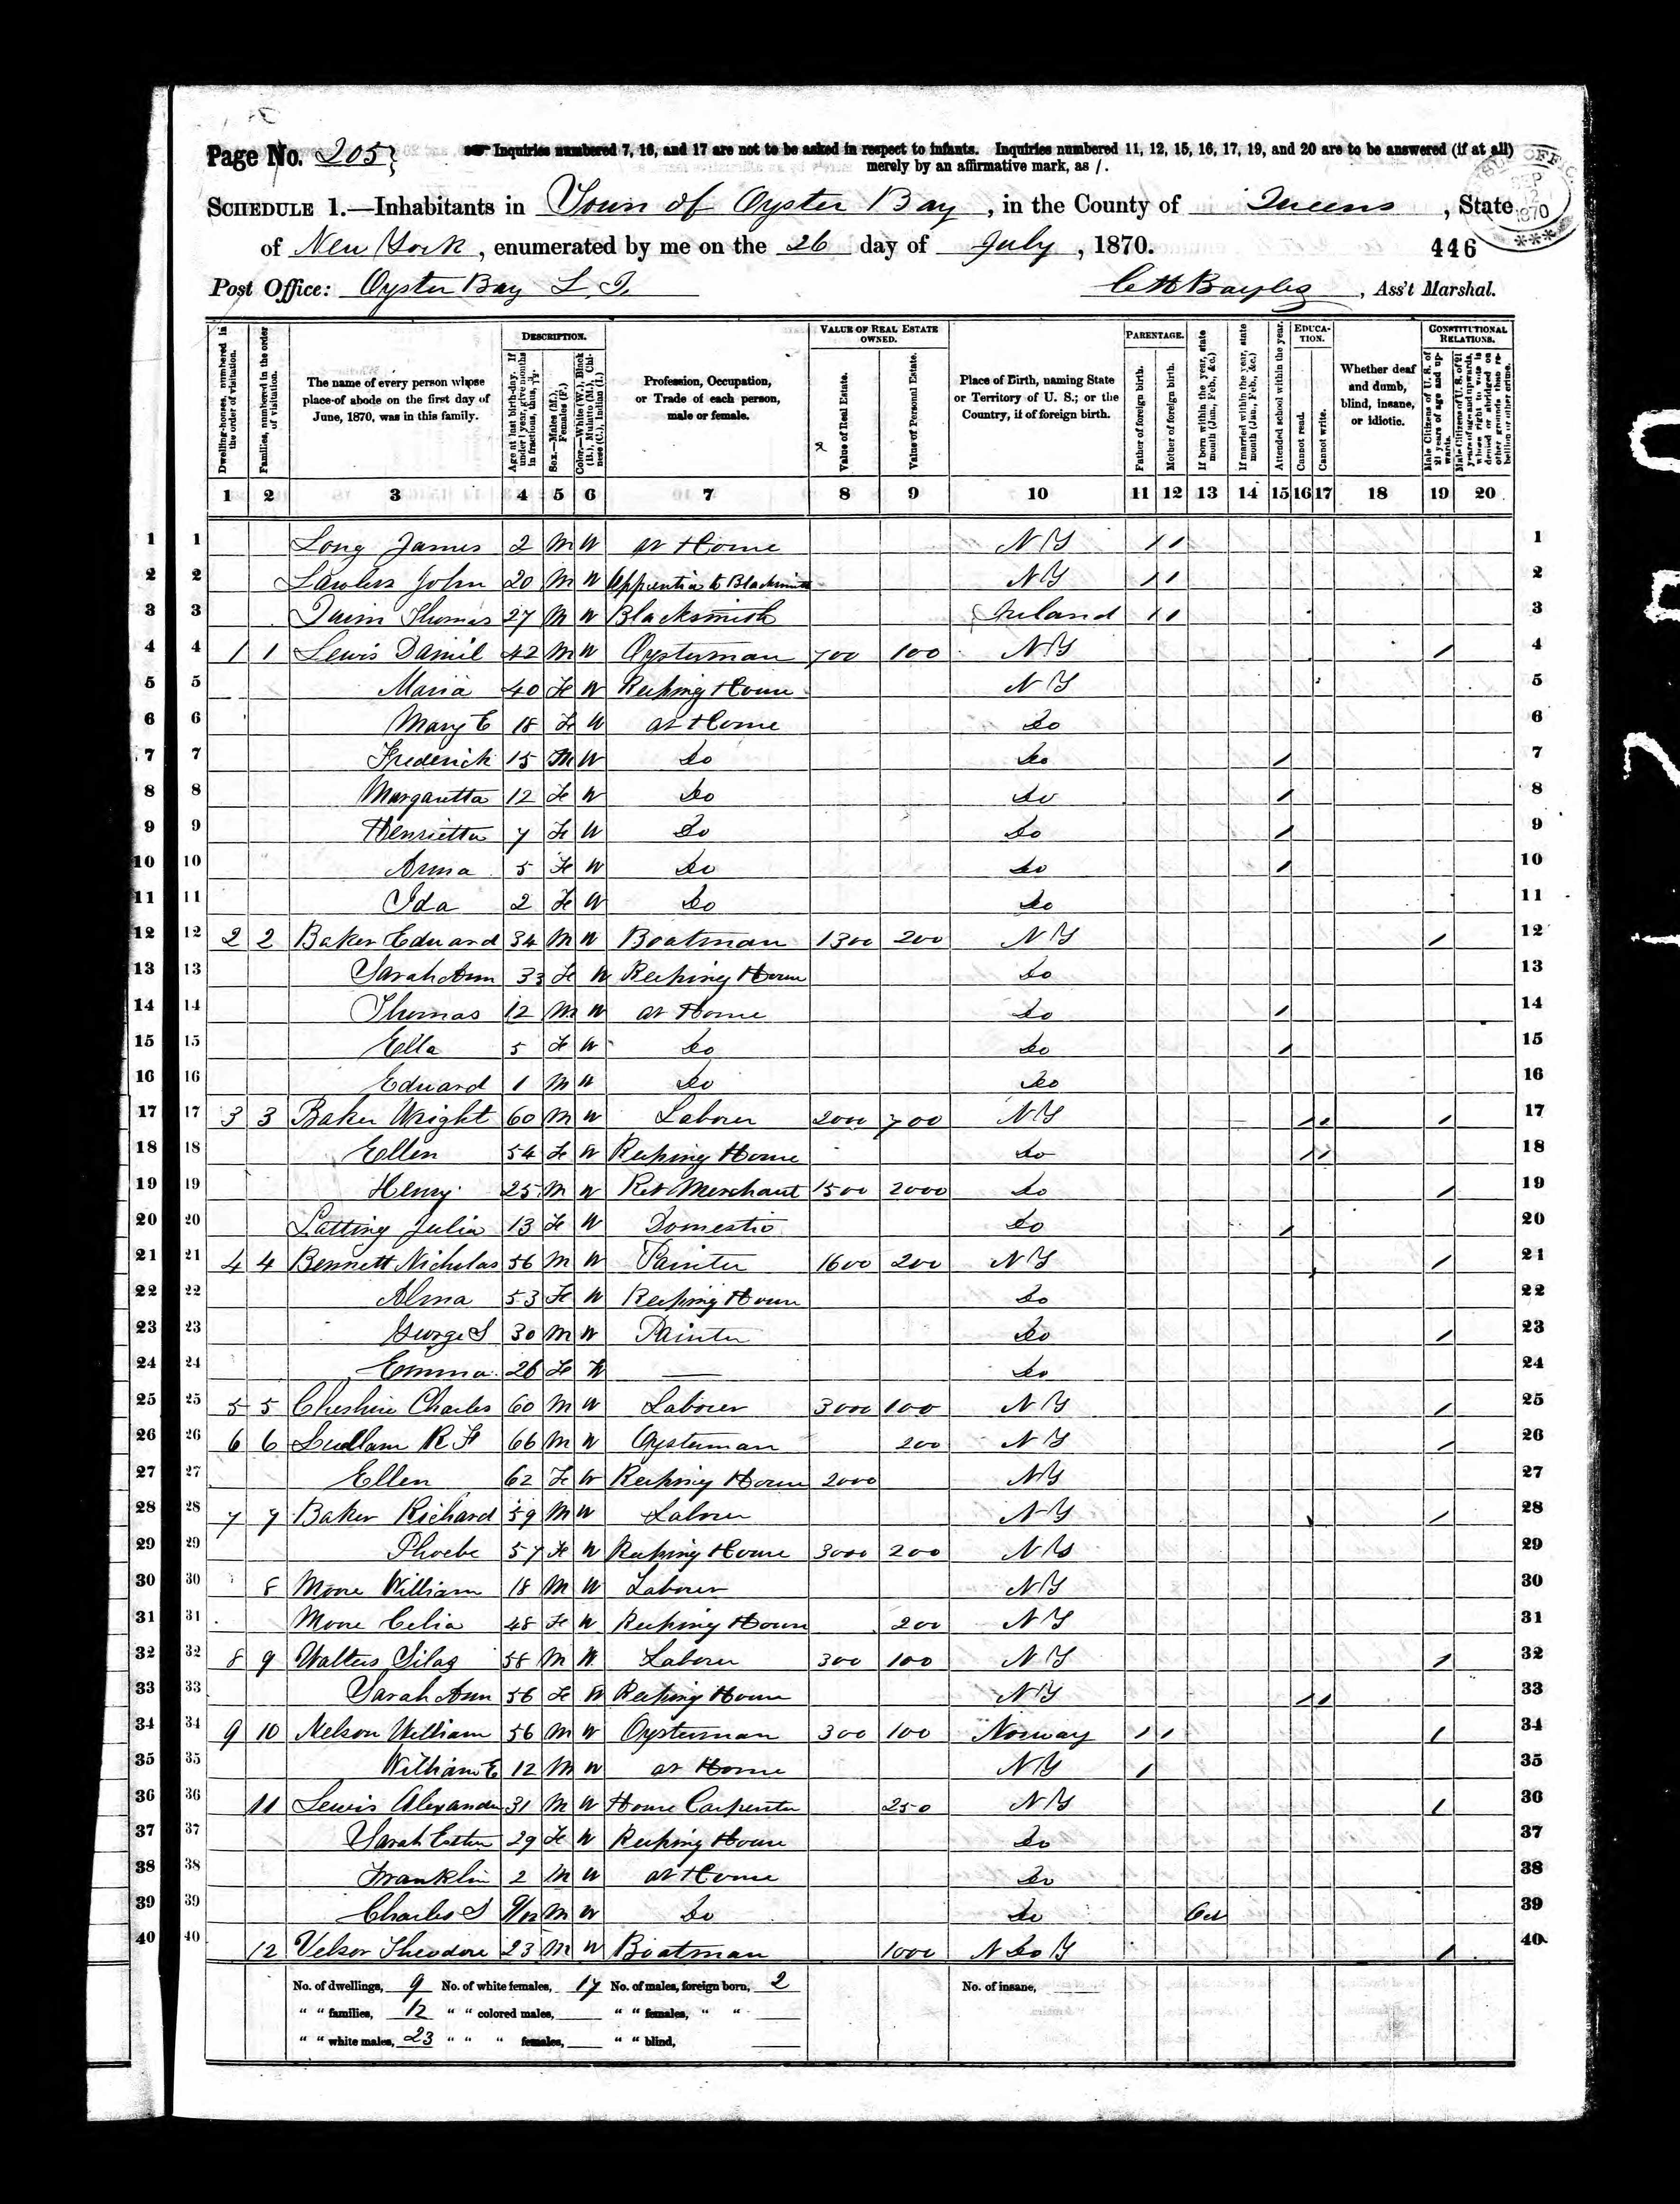 Page No. 205
Inquiries numbered 7, 16, and 17 are not to be asked in respect to infants. Inquiries numbered 11, 12, 15, 16, 17, 19, and 20 are to be answered (if at all)
merely by an affirmative mark, as /.
SCHEDULE 1.—Inhabitants in Town of Oyster Bay, in the County of Queens, State
of New York, enumerated by me on the 26 day of July, 1870.
446
SEP 1870
Post Office: Oyster Bay L. I.
, Ass't Marshal.
Dwelling-houses, numbered in the order of visitation.
Families, numbered in the order of visitation.
The name of every person whose place of abode on the first day of June, 1870, was in this family.
DESCRIPTION.
Age at last birth-day. If under 1 year, give months in fractions, thus,
Sex.—Males (M.), Females (F.)
Color.—White (W.), Black (B.), Mulatto (M.), Chinese (C.), Indian (I.)
Profession, Occupation, or Trade of each person, male or female.
VALUE OF REAL ESTATE OWNED.
Value of Real Estate.
Value of Personal Estate.
Place of Birth, naming State or Territory of U. S.; or the Country, if of foreign birth.
PARENTAGE.
Father of foreign birth.
Mother of foreign birth.
If born within the year, state month (Jan., Feb., &c.)
If married within the year, state month (Jan., Feb., &c.)
Attended school within the year.
EDUCATION.
Cannot read.
Cannot write.
Whether deaf and dumb, blind, insane, or idiotic.
CONSTITUTIONAL RELATIONS.
Male Citizens of U. S. of 21 years of age and upwards.
Male Citizens of U. S. of 21 years of age and upwards, whose right to vote is denied or abridged on other grounds than rebellion or other crime.
1 2 3 4 5 6 7 8 9 10 11 12 13 14 15 16 17 18 19 20
1 1 Long James 2 M W at Home N Y / / 1
2 2 John 20 M W Apprentice to Blacksmith N Y / / 2
3 3 Quinn Thomas 27 M W Blacksmith Ireland / / 3
4 4 1 1 Lewis Daniel 42 M W Oysterman 700 100 N Y / 4
5 5 Maria 40 Fe W Keeping House N Y 5
6 6 Mary E 18 Fe W at Home Do 6
7 7 Frederick 15 M W Do Do / 7
8 8 Margaretta 12 Fe W Do Do / 8
9 9 Henrietta 7 Fe W Do Do / 9
10 10 Anna 5 Fe W Do Do / 10
11 11 Ida 2 Fe W Do Do 11
12 12 2 2 Baker Edward 34 M W Boatman 1300 200 N Y / 12
13 13 Sarah Ann 33 Fe W Keeping House Do 13
14 14 Thomas 12 M W at Home Do / 14
15 15 Ella 5 Fe W Do Do / 15
16 16 Edward 1 M W Do Do 16
17 17 3 3 Baker Wright 60 M W Laborer 2000 700 N Y / / / 17
18 18 Ellen 54 Fe W Keeping House Do / / 18
19 19 Henry 25 M W Ret Merchant 1500 2000 Do / 19
20 20 Latting Julia 13 Fe W Domestic Do / 20
21 21 4 4 Bennett Nicholas 56 M W Painter 1600 200 N Y / 21
22 22 Alma 53 Fe W Keeping House Do 22
23 23 George S 30 M W Painter Do / 23
24 24 Emma 26 Fe W — Do 24
25 25 5 5 Cheshire Charles 60 M W Laborer 3000 100 N Y / 25
26 26 6 6 Ludlam R F 66 M W Oysterman 200 N Y / 26
27 27 Ellen 62 Fe W Keeping House 2000 N Y 27
28 28 7 7 Baker Richard 59 M W Laborer N Y / 28
29 29 Phoebe 57 Fe W Keeping House 3000 200 N Y 29
30 30 8 Moore William 18 M W Laborer N Y 30
31 31 Moore Celia 48 Fe W Keeping House 200 N Y 31
32 32 8 9 Walters Silas 58 M W Laborer 300 100 N Y / 32
33 33 Sarah Ann 56 Fe W Keeping House N Y / / 33
34 34 9 10 Nelson William 56 M W Oysterman 300 100 Norway / / / 34
35 35 William E 12 M W at Home N Y / 35
36 36 11 Lewis Alexander 31 M W House Carpenter 250 N Y / 36
37 37 Sarah Esther 29 Fe W Keeping House Do 37
38 38 Franklin 2 M W at Home Do 38
39 39 Charles S 9/12 M W Do Do Oct 39
40 40 12 Velsor Theodore 23 M W Boatman 1000 N Do Y / 40
No. of dwellings, 9 No. of white females, 17 No. of males, foreign born, 2 No. of insane,
" " families, 12 " " colored males, " " females, " "
" " white males, 23 " " " females, " " blind,